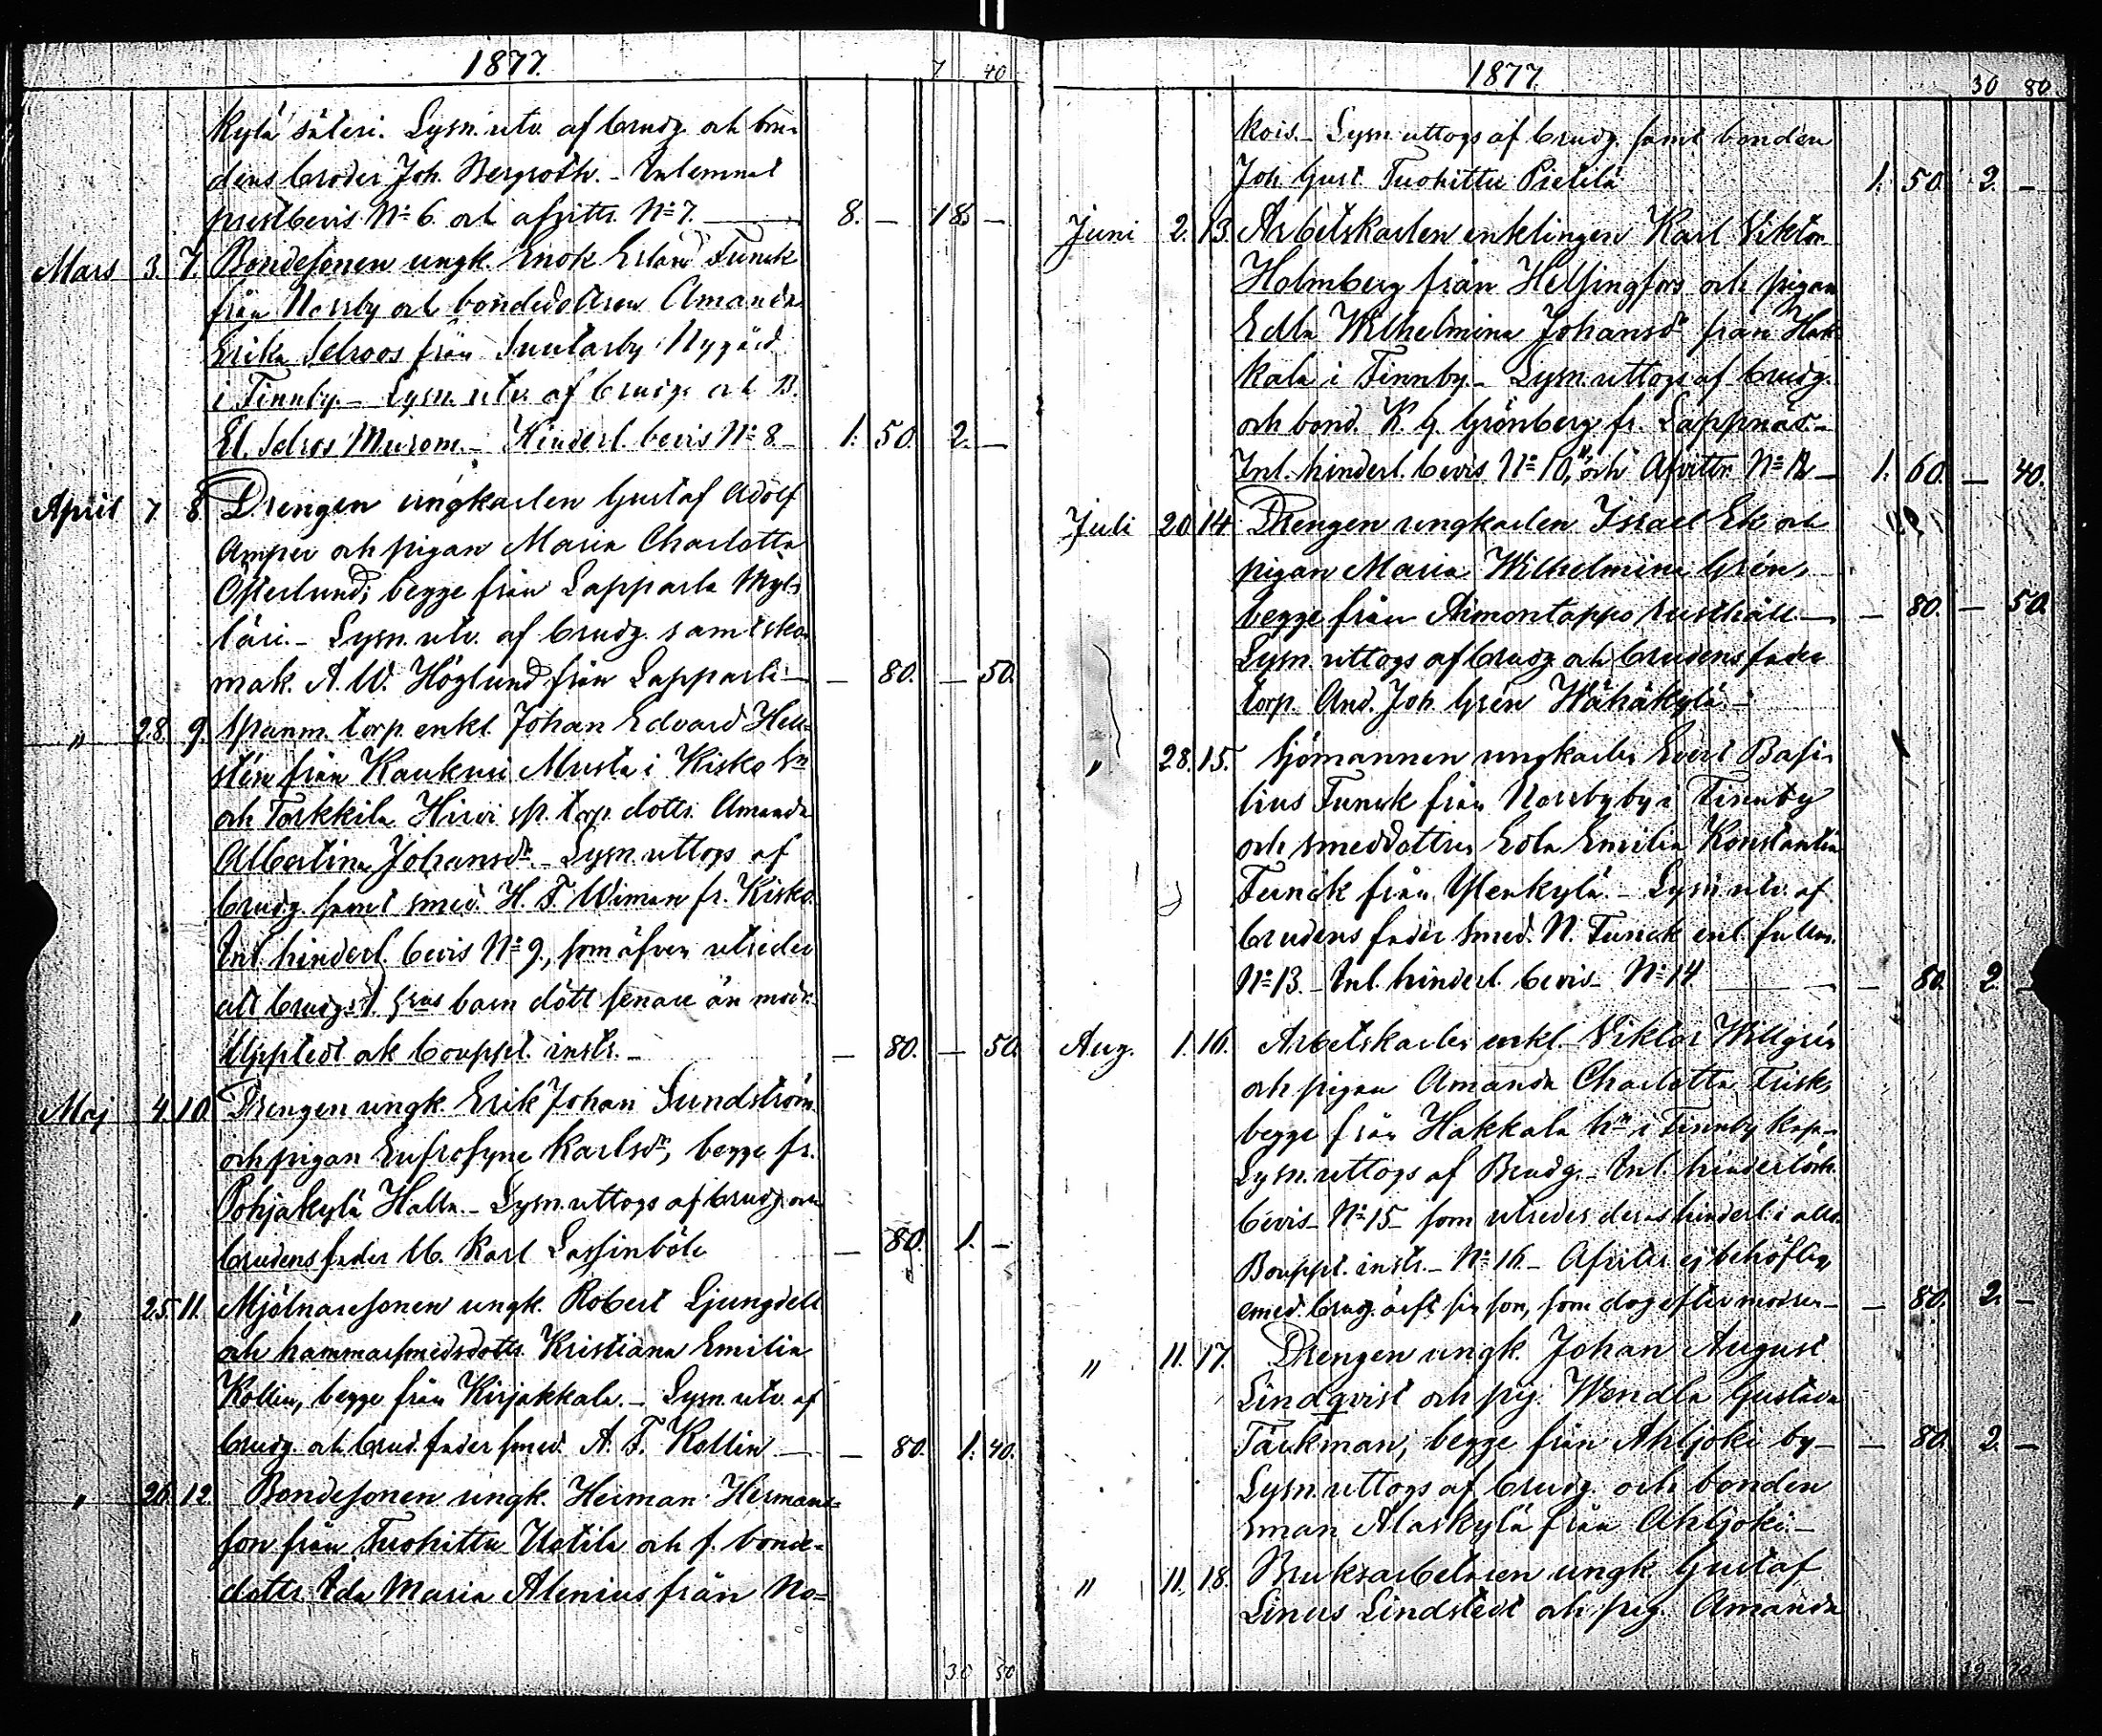 1877.
7 40
kylä säteri. Lysn. utv. af brudg. och bru-
dens broder Joh. Bergroth. - Inlemnat
prestbevis No 6. och afvittr. No 7. — 8. — 18 —
Mars 3. 7. Bondesonen ungk. Enok Erland Funck
från Norrby och bondedottren Amanda
Erika Selroos från Suutarby Nygård
i Finnby. - Lysn. utv. af brudg. och B.
El. Selros Murom. - Hinderl. bevis No 8 - 1. 50. 2. —
April 7. 8. Drengen ungkarlen Gustaf Adolf
Amper och pigan Maria Charlotta
Österlund, begge från Lapparla
- Lysn. utv. af brudg. samt sko-
mak. A. W. Höglund från Lapparla — — 80. — 50.
" 28. 9. Spanm. torp. enkl. Johan Edvard Hell-
stén från Kaukuri Musta i Kisko sn
och Torkkila Hirvi sp. torp. dottr. Amanda
Albertina Johansdr. - Lysn. uttogs af
brudg. samt smed. H. F. Wiman fr. Kisko.
Inl. hinderl. bevis No 9., som äfven utreder
att brudg:s barn dött senare än modr.
Upptedt ock bouppt. instr. - — 80. — 50.
Maj 4. 10. Drengen ungk. Erik Johan Sundström
och pigan Eufrosyne Karlsdr, begge fr.
Pohjakylä Halla. - Lysn. uttogs af brudg. och
brudens fader Karl Lassinböle — 80. 1. —
" 25. 11. Mjölnaresonen ungk. Robert Ljungdell
och hammarsmedsdottr. Kristiana Emilia
Kollin, begge från Kirjakkala. - Lysn. utv. af
brudg. och brud. fader smed. A. F. Kollin — — 80. 1. 40.
" 26. 12. Bondesonen ungk. Herman Hermans-
son från Tuohittu Uotila och f. bonde-
dottr. Ida Maria Alenius från No-
30 80
1877.
30 80
kois. - Lysn. uttogs af brudg. samt bonden
Joh. Gust. Tuohittu Pietilä 1. 50. 2. —
Juni 2. 13. Arbetskarlen enklingen Karl Viktor
Holmberg från Helsingfors och pigan
Edla Wilhelmina Johansdr från Hak-
kala i Finnby. - Lysn. uttogs af brudg.
och bond. K. G. Grönberg fr. Lappnäs. -
Inl. hinderl. bevis No 10, 11 och Afvittr. No 12 — 1. 60. — 40.
Juli 20. 14. Drengen ungkarlen Israel Ek och
pigan Maria Wilhelmina Grén,
begge från Aimontappo rusthåll. — — 80. — 50.
Lysn. uttogs af brudg. och brudens fader
torp. And. Joh. Grén Wähäkylä. -
" 28. 15. Sjömannen ungkarlen Evert Basi-
lius Funck från Norrby by i Finnby
och smeddottren Edla Emilia Konstantia
Funck från Ylenkylä. - Lysn. utv. af
brudens fader smed. N. Funck enl. fullm.
No 13. - Inl. hinderl. bevis No 14 — 80. 2. —
Aug. 1. 16. Arbetskarlen enkl. Viktor Willgrén
och pigan Amanda Charlotta Frisk,
begge från Hakkala hn i Finnby kap. -
Lysn. uttogs af Brudg. - Inl. hinderlösh.
bevis No 15 som utreder deras hinderl. i allo.
Bouppt. instr. - No 16 - Afvittr. ej behöflig
emed. brudg. ärft sin son, som dog efter modren — — 80. 2. —
" 11. 17. Drengen ungk. Johan August
Lindqvist och pig. Wendla Gustava
Täckman, begge från Ahljoki by — — 80. 2. —
Lysn. uttogs af brudg. och bonden
Alaskylä från Ahljoki. -
" 11. 18. Bruksarbetaren ungk. Gustaf
Linus Lindstedt och pig. Amanda